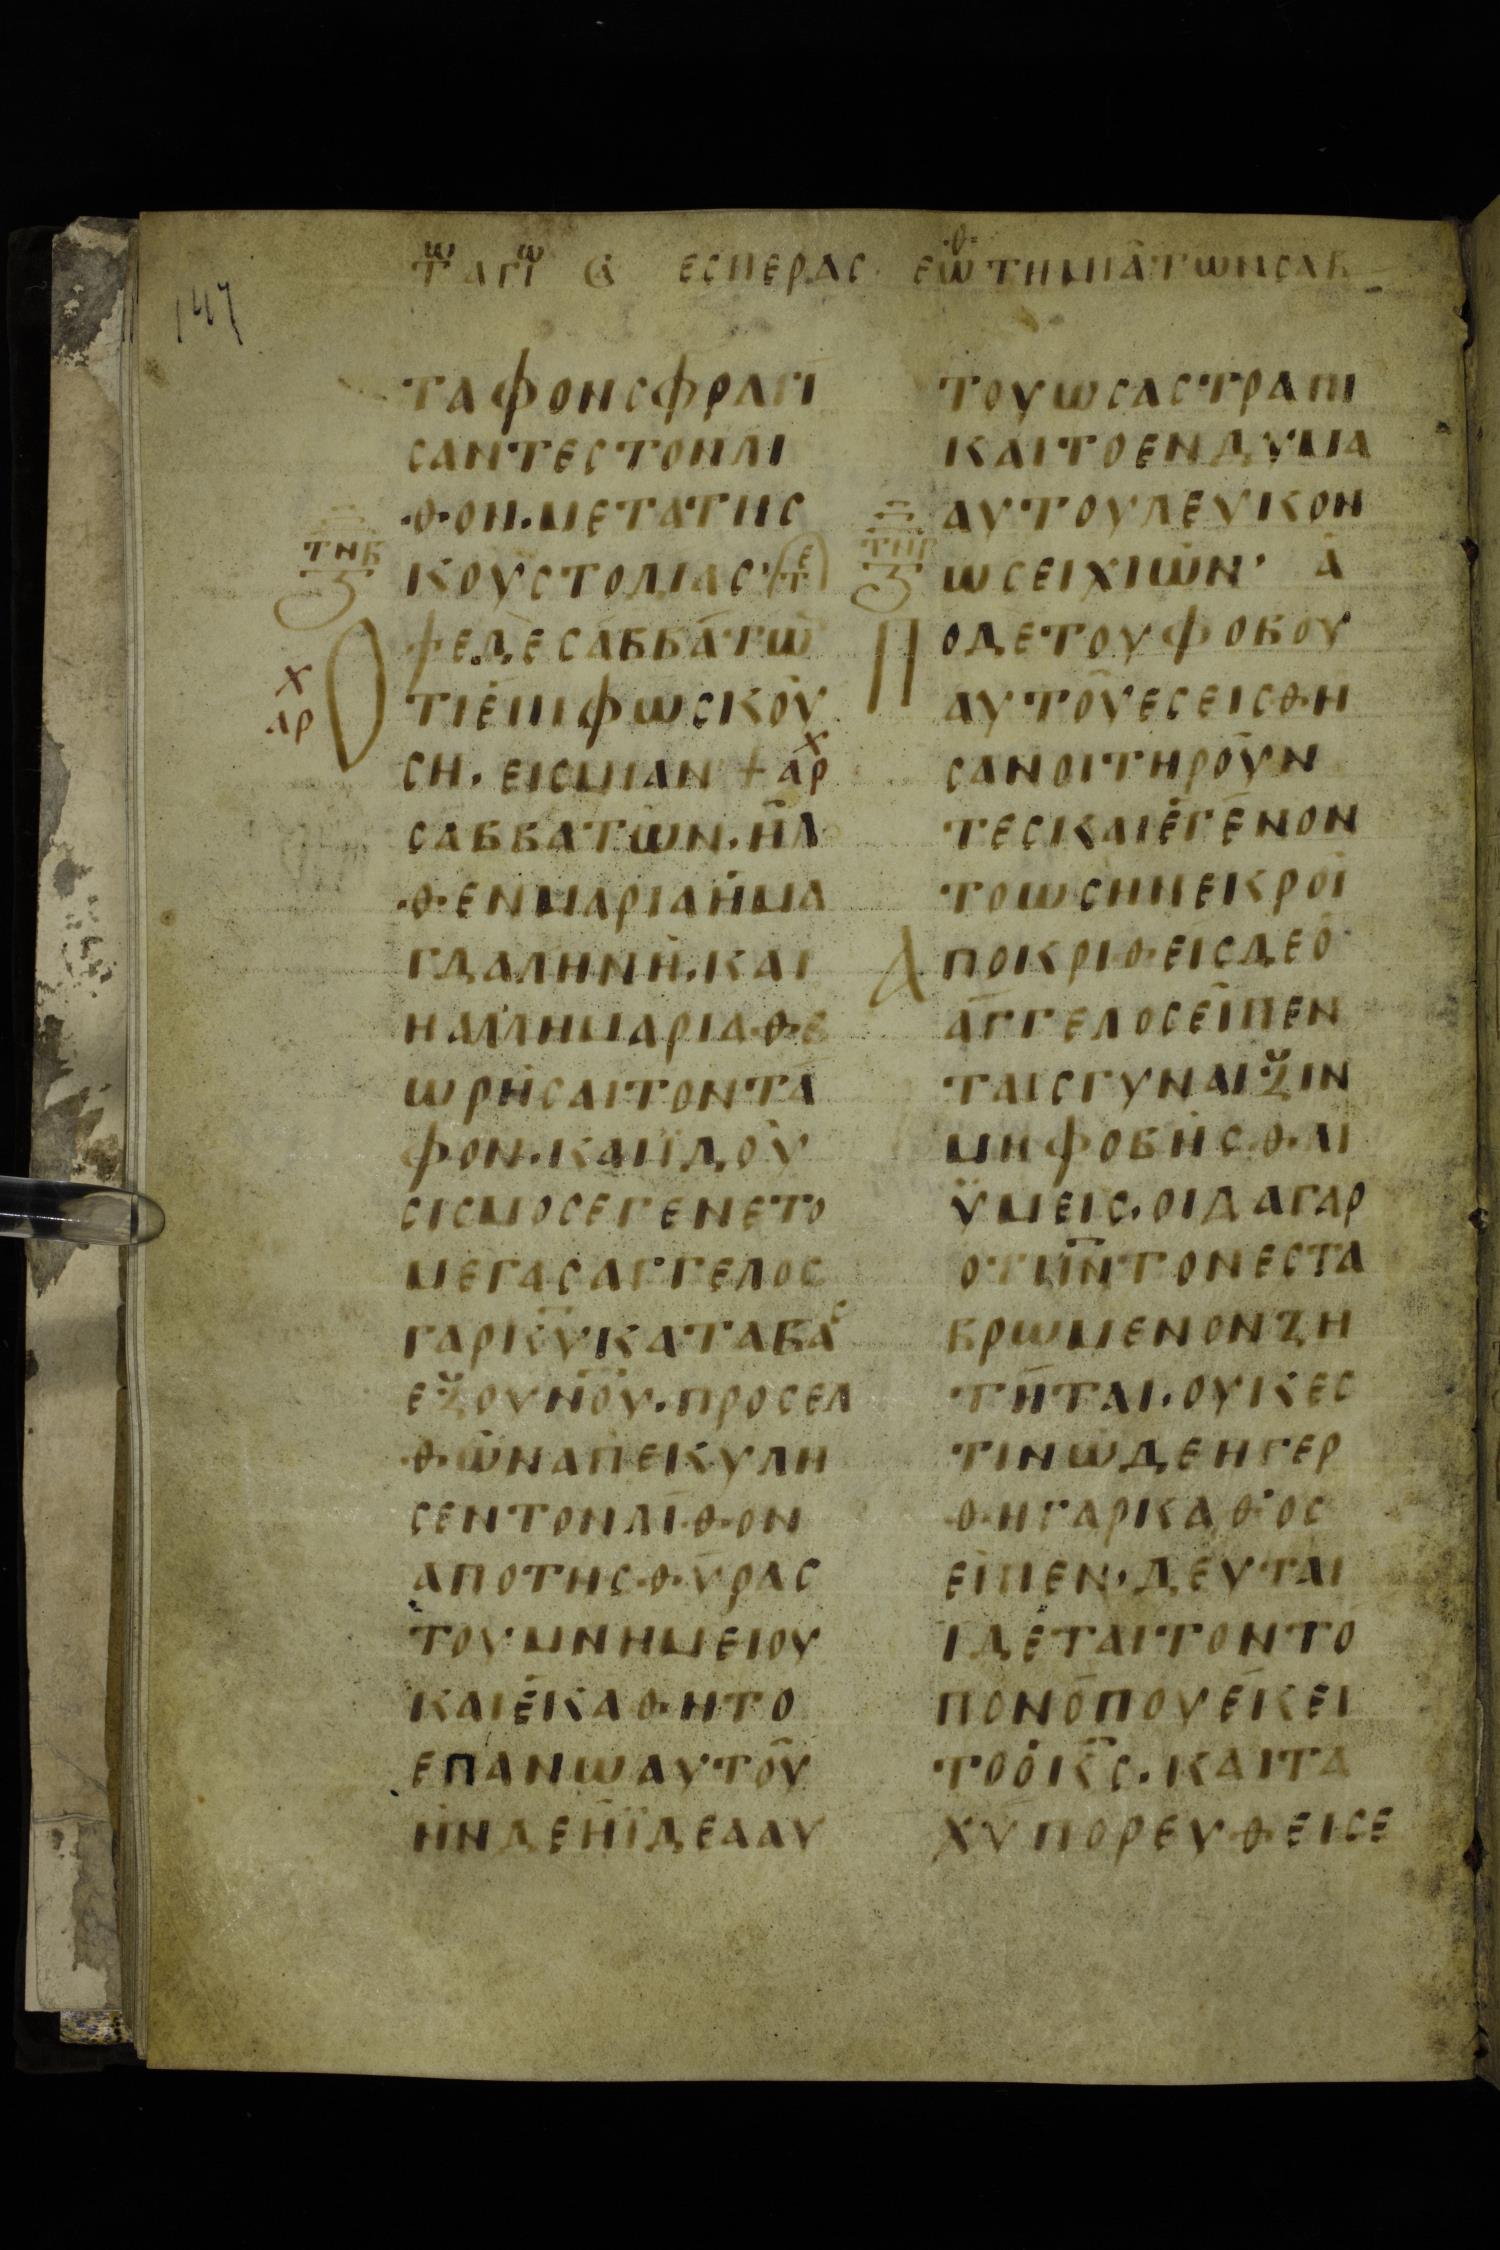 147
τ͞ω αγι͞ω σα εσπερας εωθ τη μια των σαβ
ταφονσφραγι
σαντεστονλι
θον·μετατης
κουστοδιας· τε
τνβ
ς
χ
αρ
Οψεδεσαββατω
τιεπιφωσκου
ση·εισμιαν + αρχ
σαββατων·ηλ
θενμαριαημα
γδαληνη·και
ηαλλημαρια·θε
ωρησαιτοντα
φον·καιϊδου
σισμοσεγενετο
μεγασαγγελος
γαρκ͞υκαταβας
εξουν͞ου·προσελ
θωναπεκυλη
σεντονλιθον
αποτησθυρας
τουμνημειου
καιεκαθητο
επανωαυτου
ηνδεηϊδεααυ
τουωσαστραπι
καιτοενδυμα
αυτουλευκον
τνγ
ς
ωσειχιων· Α
Ποδετουφοβου
αυτουεσεισθη
σανοιτηρουν
τεσκαιεγενον
τοωσηνεκροι
Αποκριθεισδεο
αγγελοσειπεν
ταισγυναιξιν
μηφοβησθαι
ϋμεις·οιδαγαρ
οτιι͞ντονεστα
βρωμενονζη
τηται·ουκεσ
τινωδεηγερ
θηγαρκαθος
ειπεν·δευται
ιδεταιτοντο
πονοπουεκει
τοοκ͞ς·καιτα
χυπορευθεισε